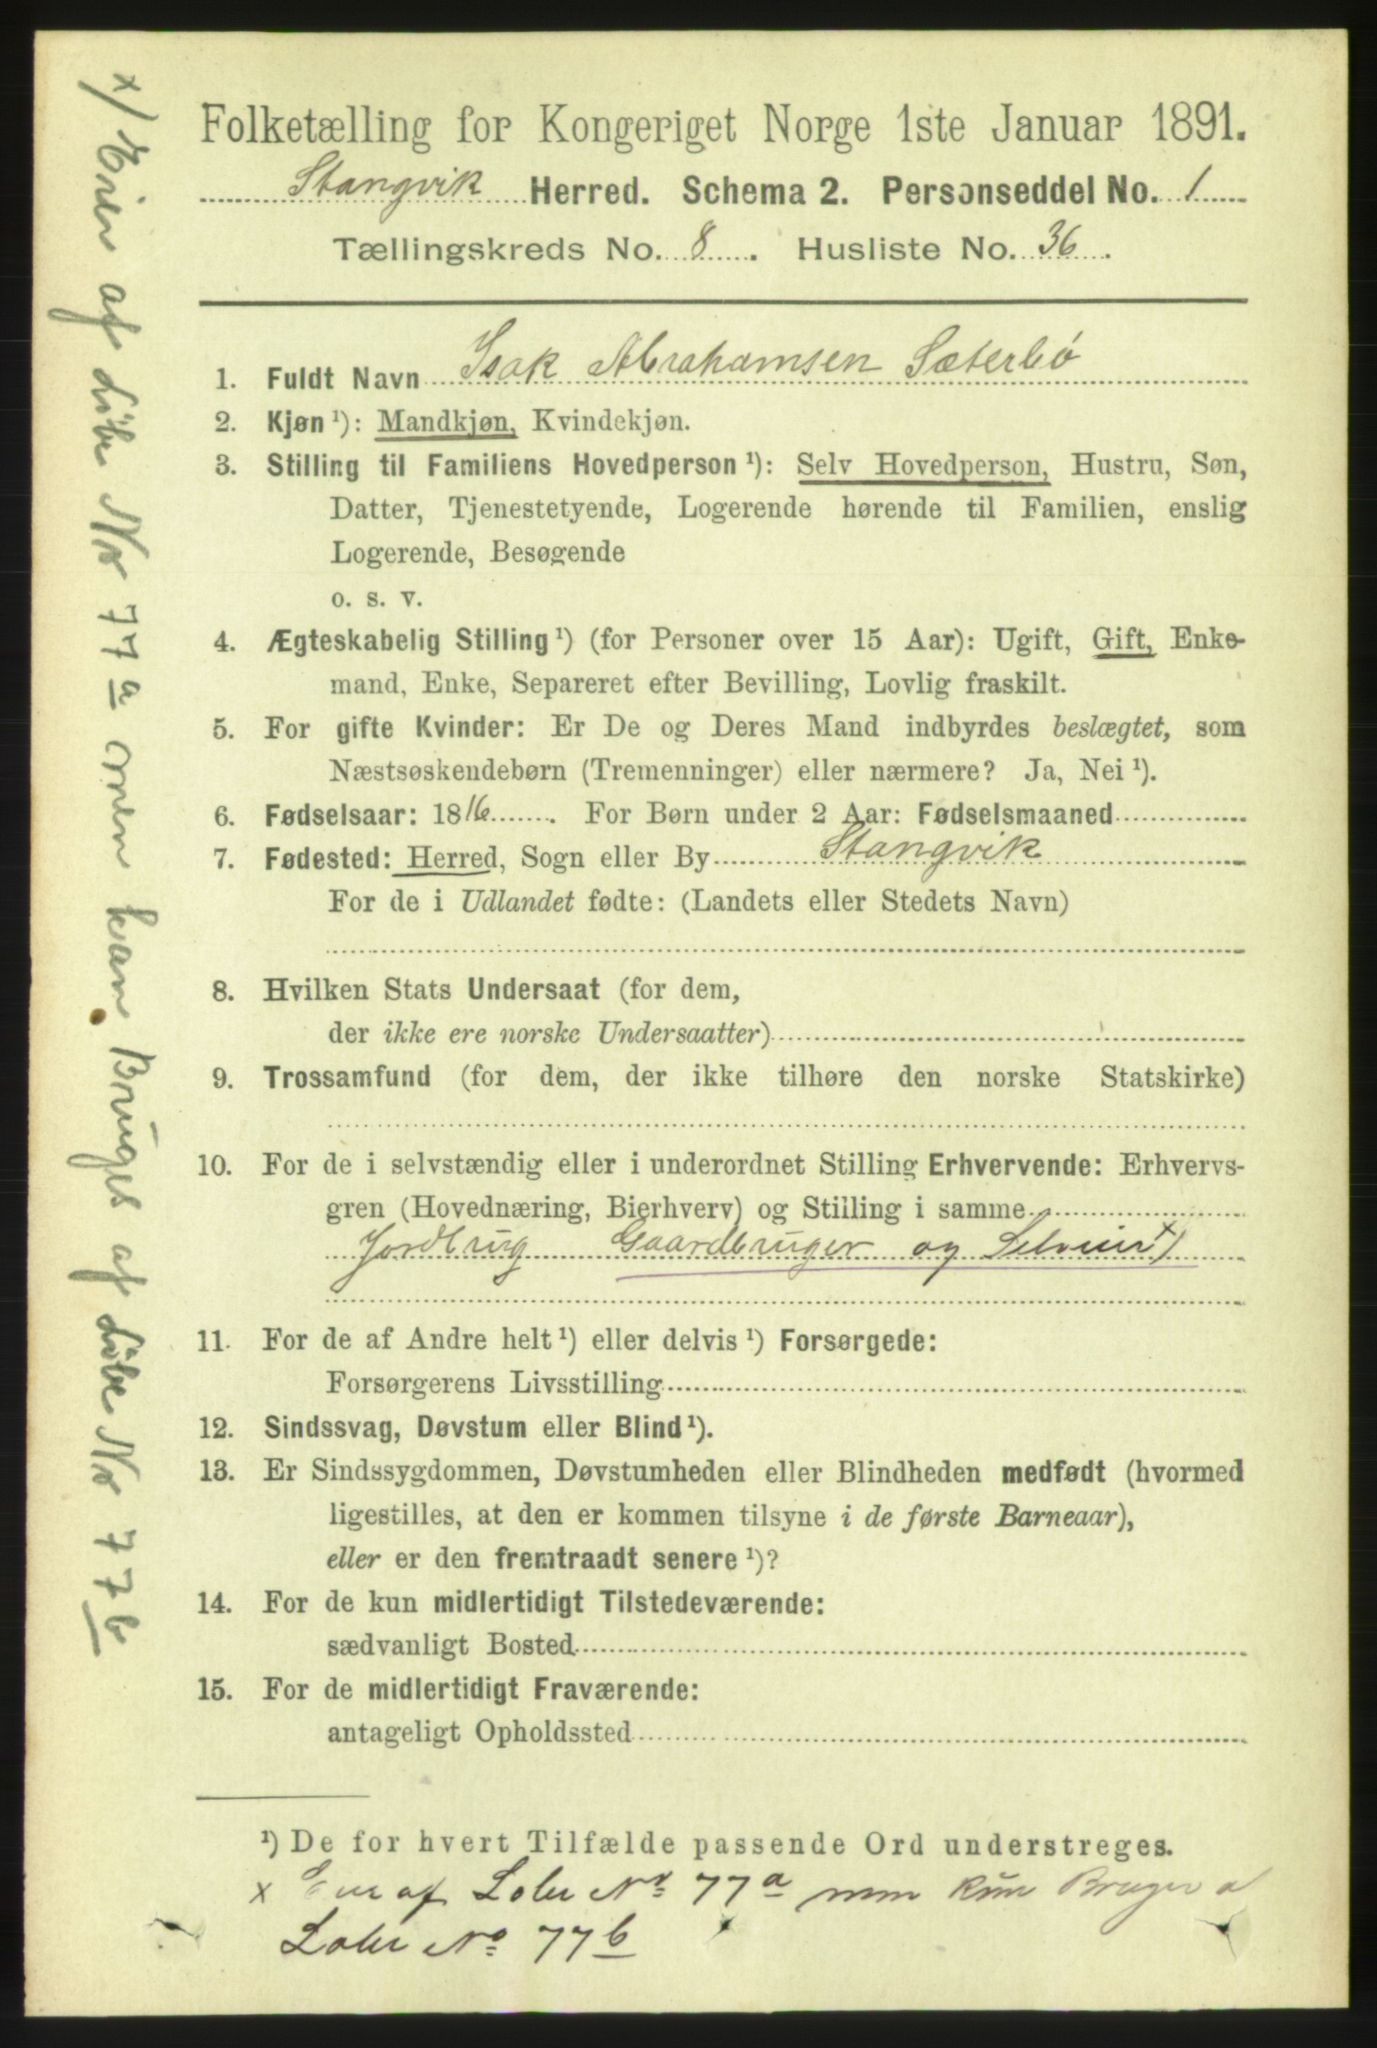 Folketælling for Kongeriget Norge 1ste Januar 1891.
Stangvik Herred. Schema 2. Personseddel No. 1
Tællingskreds No. 8. Husliste No. 36.
1. Fuldt Navn Isak Abrahamsen Sæterbø
2. Kjøn ¹): Mandkjøn, Kvindekjøn.
3. Stilling til Familiens Hovedperson ¹): Selv Hovedperson, Hustru, Søn,
Datter, Tjenestetyende, Logerende hørende til Familien, enslig
Logerende, Besøgende
o. s. v.
4. Ægteskabelig Stilling ¹) (for Personer over 15 Aar): Ugift, Gift, Enke-
mand, Enke, Separeret efter Bevilling, Lovlig fraskilt.
5. For gifte Kvinder: Er De og Deres Mand indbyrdes beslægtet, som
Næstsøskendebørn (Tremenninger) eller nærmere? Ja, Nei ¹).
6. Fødselsaar: 1816. For Børn under 2 Aar: Fødselsmaaned
7. Fødested: Herred, Sogn eller By Stangvik
For de i Udlandet fødte: (Landets eller Stedets Navn)
8. Hvilken Stats Undersaat (for dem,
der ikke ere norske Undersaatter)
9. Trossamfund (for dem, der ikke tilhøre den norske Statskirke)
10. For de i selvstændig eller i underordnet Stilling Erhvervende: Erhvervs-
gren (Hovednæring, Bierhverv) og Stilling i samme
Jordbrug Gaardbruger og Selveier x)
11. For de af Andre helt ¹) eller delvis ¹) Forsørgede:
Forsørgerens Livsstilling
12. Sindssvag, Døvstum eller Blind ¹).
13. Er Sindssygdommen, Døvstumheden eller Blindheden medfødt (hvormed
ligestilles, at den er kommen tilsyne i de første Barneaar),
eller er den fremtraadt senere ¹)?
14. For de kun midlertidigt Tilstedeværende:
sædvanligt Bosted
15. For de midlertidigt Fraværende:
antageligt Opholdssted
¹) De for hvert Tilfælde passende Ord understreges.
x Eier af Løbe No 77a men kun Bruger af
Løbe No 77b
x) Eier af Løbe No 77a men kan Bruges af Løbe No 77b